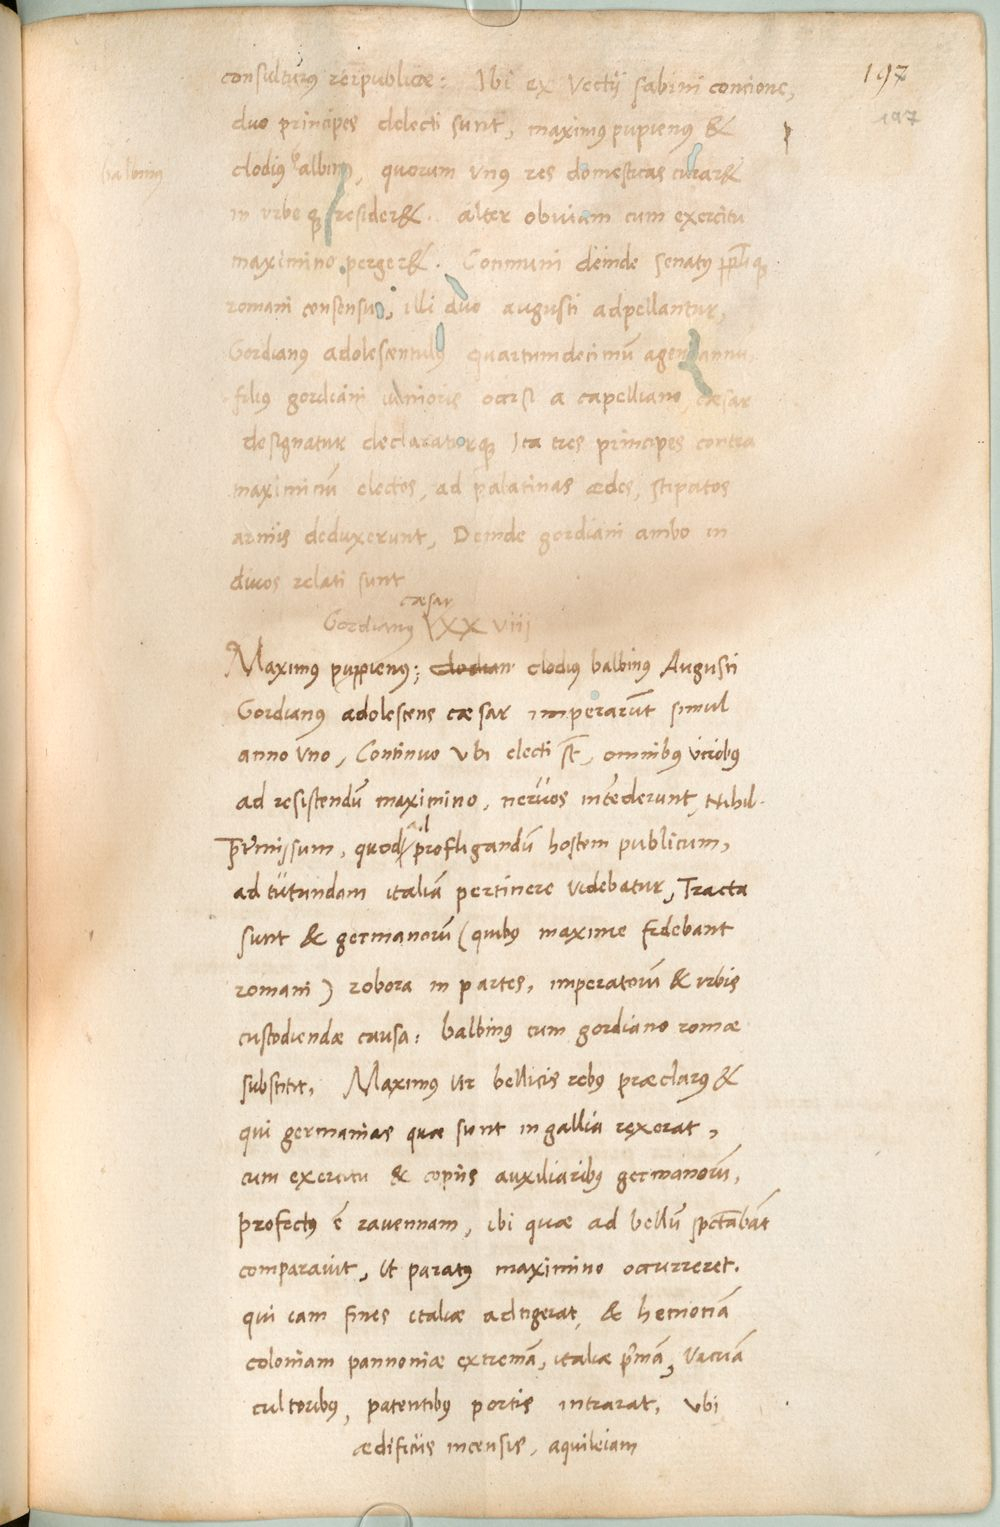 197
197
consulturus reipublicæ: Ibi ex Vectij sabini concione,
duo principes delecti sunt, maximus pupienus &
balbinus
clodius albinus, quorum Vnus res domesticas curar&
in vrbe q; presider&. alter obuiam cum exercitu
maximino perger&. Conmuni deinde senatus pplíq;
romani consensu, illi duo augusti adpellantur,
Gordianus adolescentulus quartumdecimū agens annū,
filius gordiani iunioris occisi a capelliano, cæsar
designatur declaraturq; Ita tres principes contra
maximinū electos, ad palatinas ædes, stipatos
armis deduxerunt, Deinde gordiani ambo in
diuos relati sunt
cæsar
Gordianus XXVIII
Maximus puppienus; clodius balbinus Augusti
Gordianus adolescens cæsar imperarūt simul
anno Vno, Continuo Vbi electi st̄, omnibus uiribus
ad resistendū maximino, neruos intēderunt, Nihil
prętermissum, quod ad profligandū hostem publicum,
ad tutandam italiā pertinere videbatur, Tracta
sunt & germanorū (quibus maxime fidebant
romani) robora in partes, imperatorū & vrbis
custodiendæ causa: balbinus cum gordiano romæ
substitit, Maximus vir bellicis rebus præclarus &
qui germanias quæ sunt in gallia rexerat,
cum exercitu & copiis auxiliaribus germanorū,
profectus ē rauennam, ibi quæ ad bellū spectabāt
comparauit, Vt paratus maximino occurreret.
qui iam fines italiæ adtigerat, & hemoniā
coloniam pannoniæ extremā, italiæ p̄mā, Vacuā
cultoribus, patentibus portis intrarat, Vbi
ædificiis incensis, aquileiam